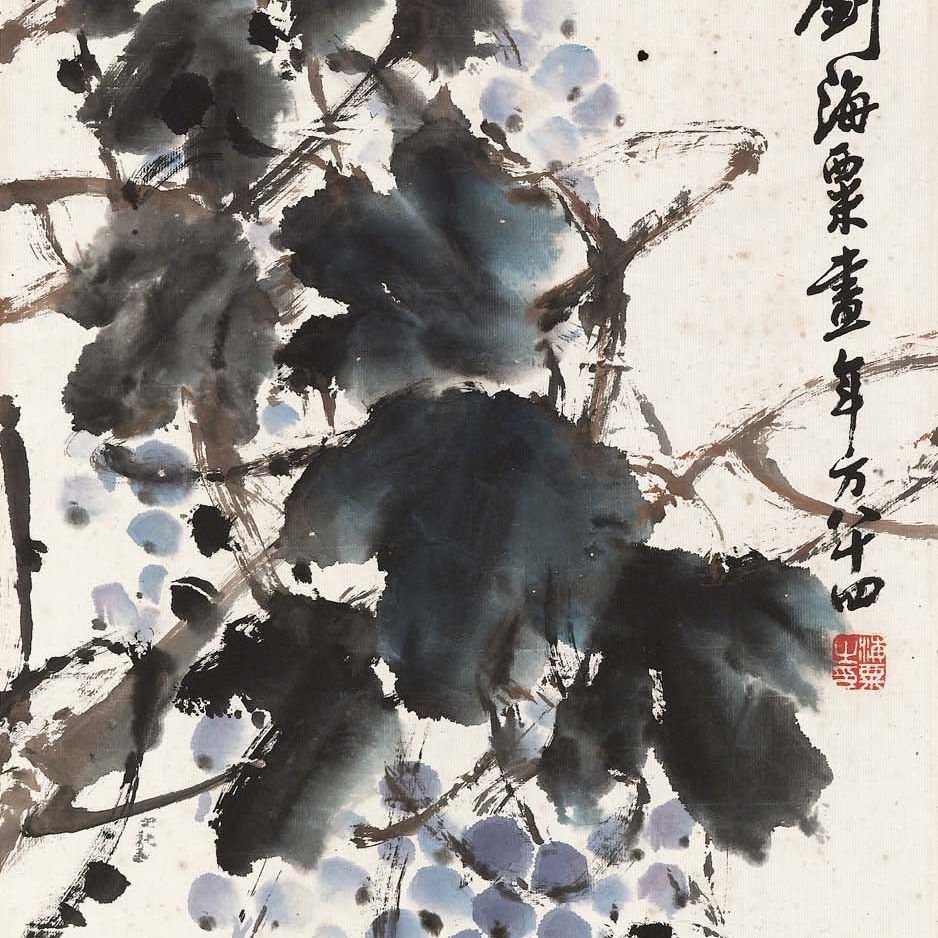 劉海粟畫年方八十四
海粟